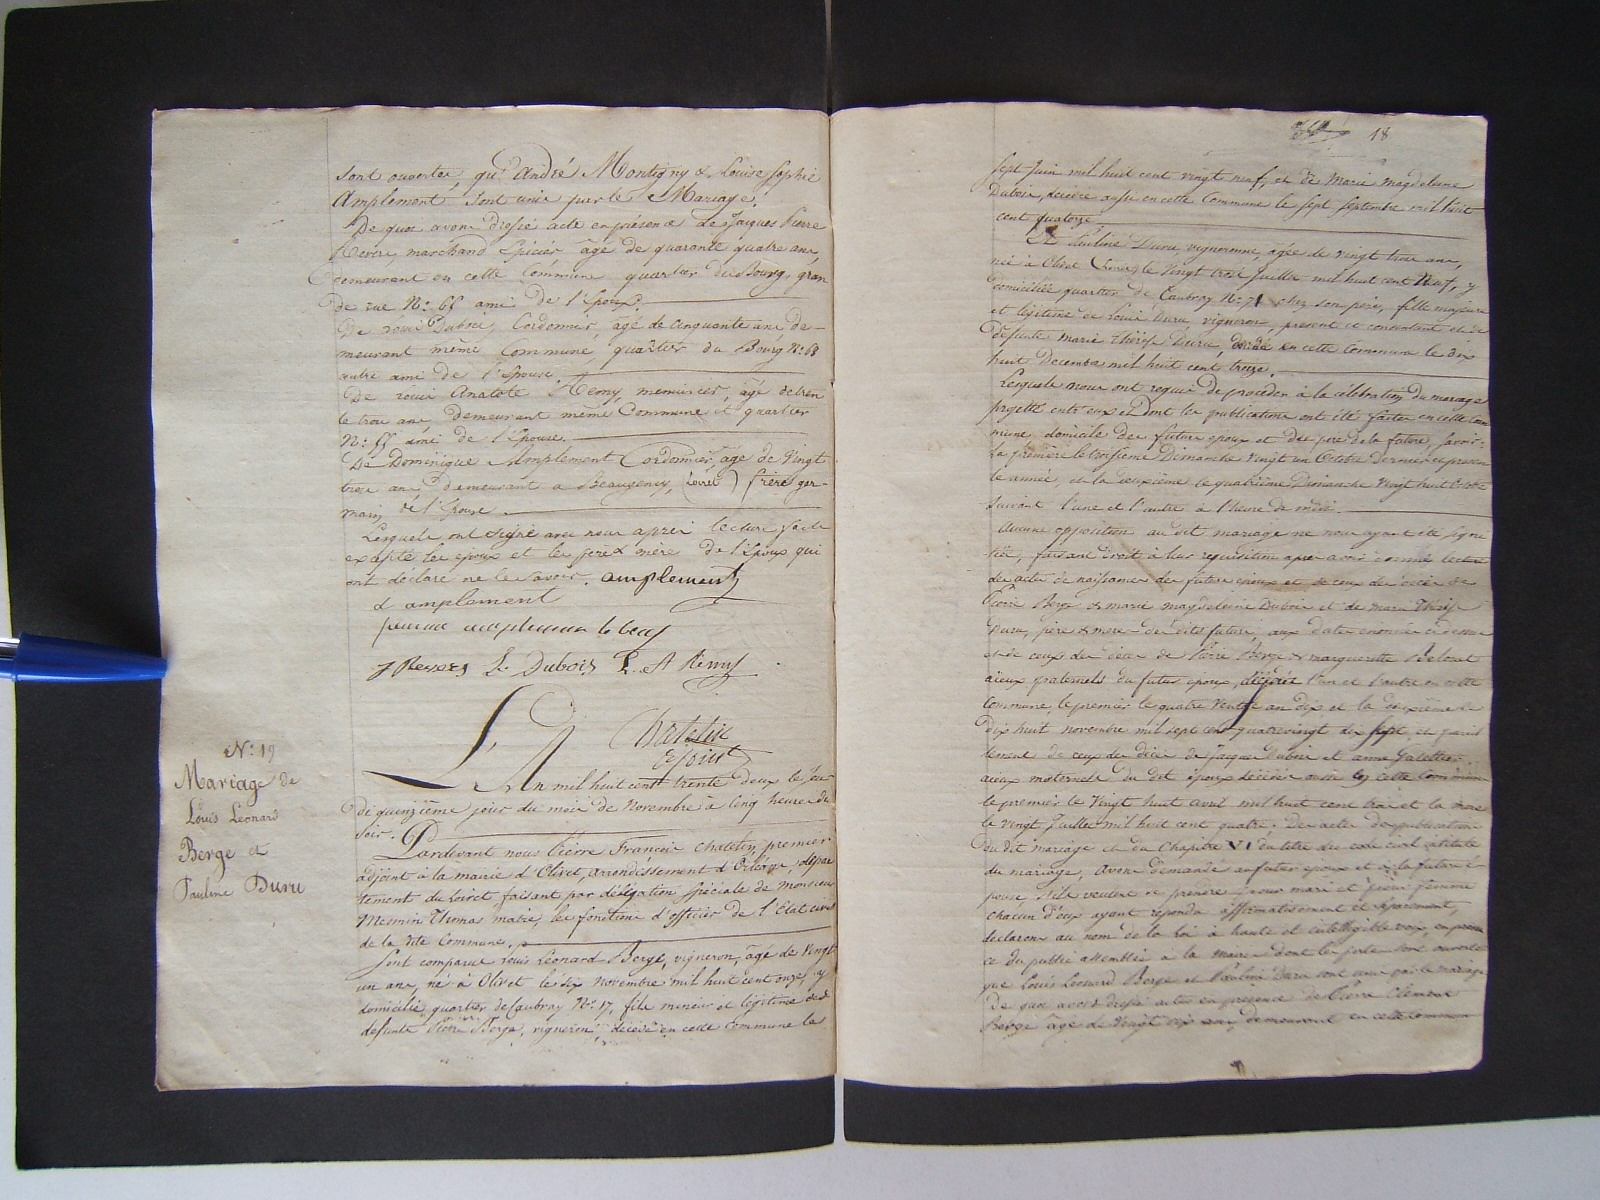 sont ouvertes, que André Montigny & Louise Sophie
Amplement sont unis par le Mariage.
De quoi avons dressé acte en présence De Jacques Pierre
marchand Epicier âgé de quarante quatre ans,
demeurant en cette Commune quartier du Bourg, gran
de rue N.º 65 ami de l'Epoux.
De Louis Dubois, Cordonnier âgé de cinquante ans de-
meurant même Commune, quartier du Bourg N.º 68
autre ami de l'Epouse.
De Louis Anatole Remy, menuisier, âgé de tren
te trois ans, demeurant même Commune et quartier
N.º 55 ami de l'Epouse.
De Dominique Amplement Cordonnier âgé de Vingt
trois ans, demeurant a Beaugency, (Loiret) frère ger-
main de l'Epouse.
Lesquels ont signé avec nous après lecture faite
excepté les époux et les pere & mère de l'Epoux qui
ont déclaré ne le savoir. amplement
d amplement
amplement le
J Revers L. Dubois L. A Remy
Chatelin
adjoint
N.º 19
Mariage de
Louis Leonard
Berge et
Pauline Duru
L'An mil huit cent trente deux le Jeu
di quinzième jour du mois de Novembre à cinq heures du
soir.
Pardevant nous Pierre François Chatelin, premier
adjoint à la mairie d'Olivet, arrondissement d'Orléans, dépar
tement du Loiret faisant par délégation spéciale de monsieur
Mesmin Thomas maire, les fonctions d'officier de l'Etat civil
de la dite Commune.
Sont comparus Louis Léonard Berge, vigneron, âgé de Vingt
un ans, né à Olivet le dix Novembre mil huit cent onze, y
domicilié, quartier de Caubray N.º 17, fils mineur et légitime de
defunts Pierre Berge, vigneron, décédé en cette commune le
18
sept Juin mil huit cent vingt neuf, et de Marie magdeleine
Dubois, décédée aussi en cette Commune le sept septembre mil huit
cent quatorze
Et Pauline Duru, vigneronne, agée de vingt trois ans,
née à Olivet (Loiret) le Vingt trois Juillet mil huit cent Neuf, y
domiciliée quartier de Caubray N.º 71 chez son père, fille majeure
et légitime de Louis Duru vigneron, présent et consentant et de
défunte marie Thérèse Duru, décédée en cette commune le dix
huit Décembre mil huit cent treize.
Lesquels nous ont requis de procéder à la célébration du mariage
projetté entr'eux et Dont les publications ont été faites en cette com
mune, domicile des futurs époux et des pere de la future, savoir:
La première le troisième Dimanche Vingt un Octobre dernier et présen
te année, et la deuxième le quatrième Dimanche Vingt huit Octobre
suivant l'une et l'autre à l'heure de midi.
Aucune opposition au dit mariage ne nous ayant été signi
fiée, faisant droit à leur requisition après avoir donné lecture
des actes de naissances des futurs époux et de ceux des décès de
Pierre Berge & marie magdeleine Dubois et de marie Thérèse
Duru, père & mere des dits futurs, aux dates énoncées ci dessus
et de ceux des décès de Pierre Berge & marguerite
aieux paternels du futur époux, décédés l'un et l'autre en cette
Commune, le premier le quatre Ventose an dix et la deuxième le
Dix huit novembre mil sept cent quatrevingt dix sept, et pareil
lement de ceux des décès de Jacques Dubois et anne
aieux maternels du dit époux décédés aussi en cette Commune
le premier le Vingt huit avril mil huit cent trois et la
le vingt Juillet mil huit cent quatre. Des actes de publication
du dit mariage et du Chapitre VI du titre du code civil intitulé
du mariage, Avons demandé au futur époux et à la future é-
pouse s'ils veulent se prendre pour mari et pour femme
chacun d'eux ayant répondu affirmativement et séparément,
déclarons au nom de la loi à haute et intelligible voix, en présen
ce du public assemblé a la mairie dont les portes sont ouvertes
que Louis Leonard Berge et Pauline Duru sont unis par le mariage
De quoi avons dressé acte en présence de Pierre Clément
Berge âgé de Vingt six ans, demeurant en cette commune